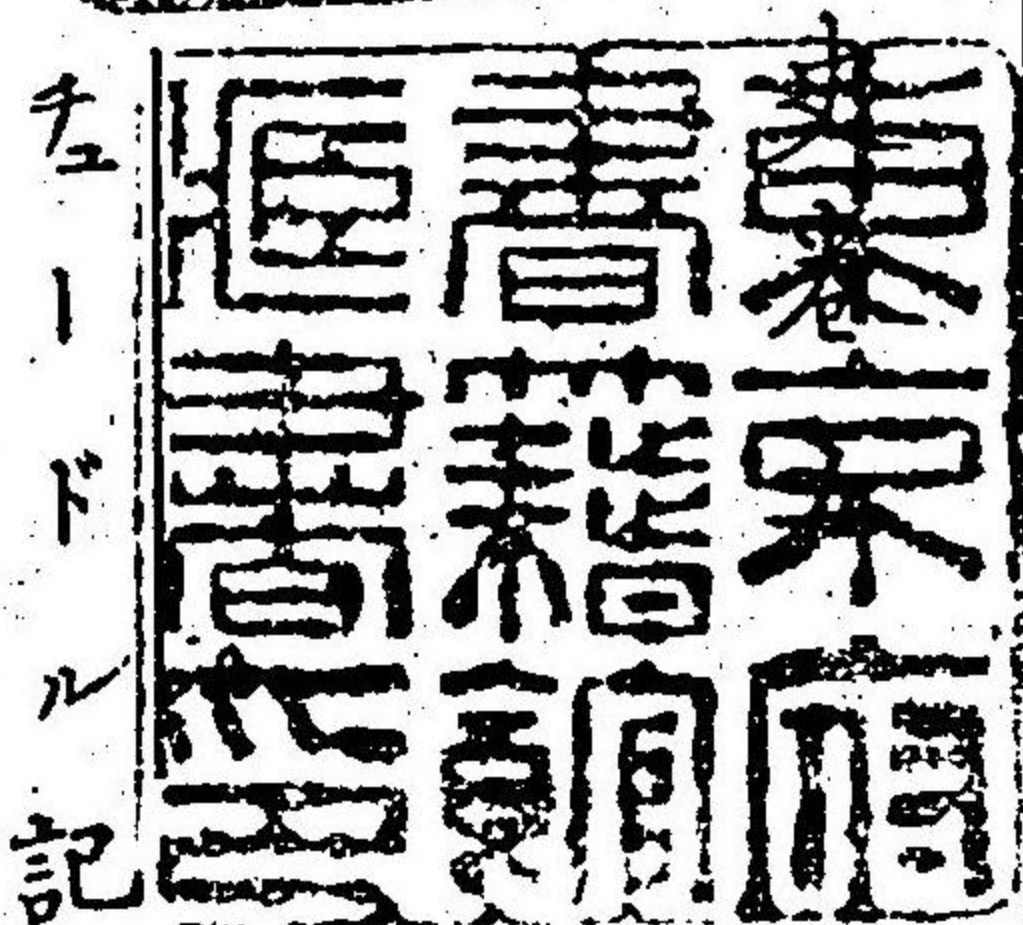 東京府
書籍館
臧書印
チュードル記